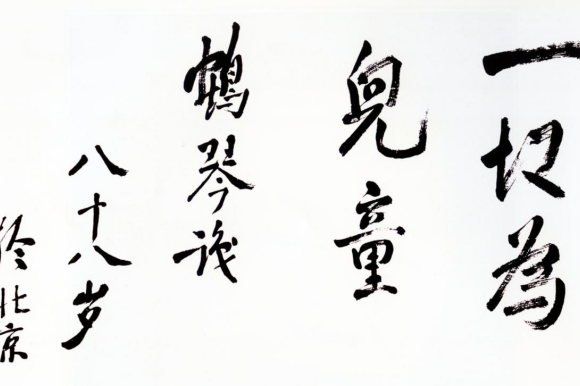 一切為
兒童
鶴琴
八十八岁
於北京